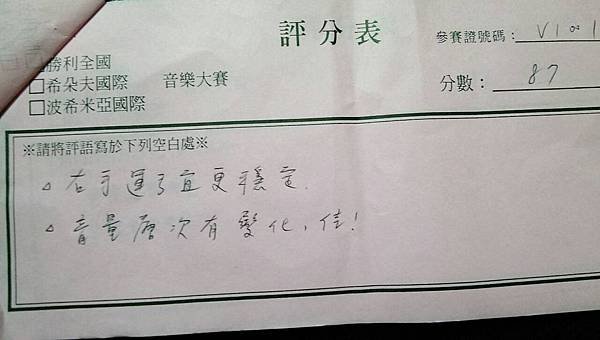 評分表
參賽證號碼：V1001
勝利全國
□希朵夫國際 音樂大賽
□波希米亞國際
分數：87
※請將評語寫於下列空白處※
△右手運弓宜更穩定.
△音量層次有變化，佳！